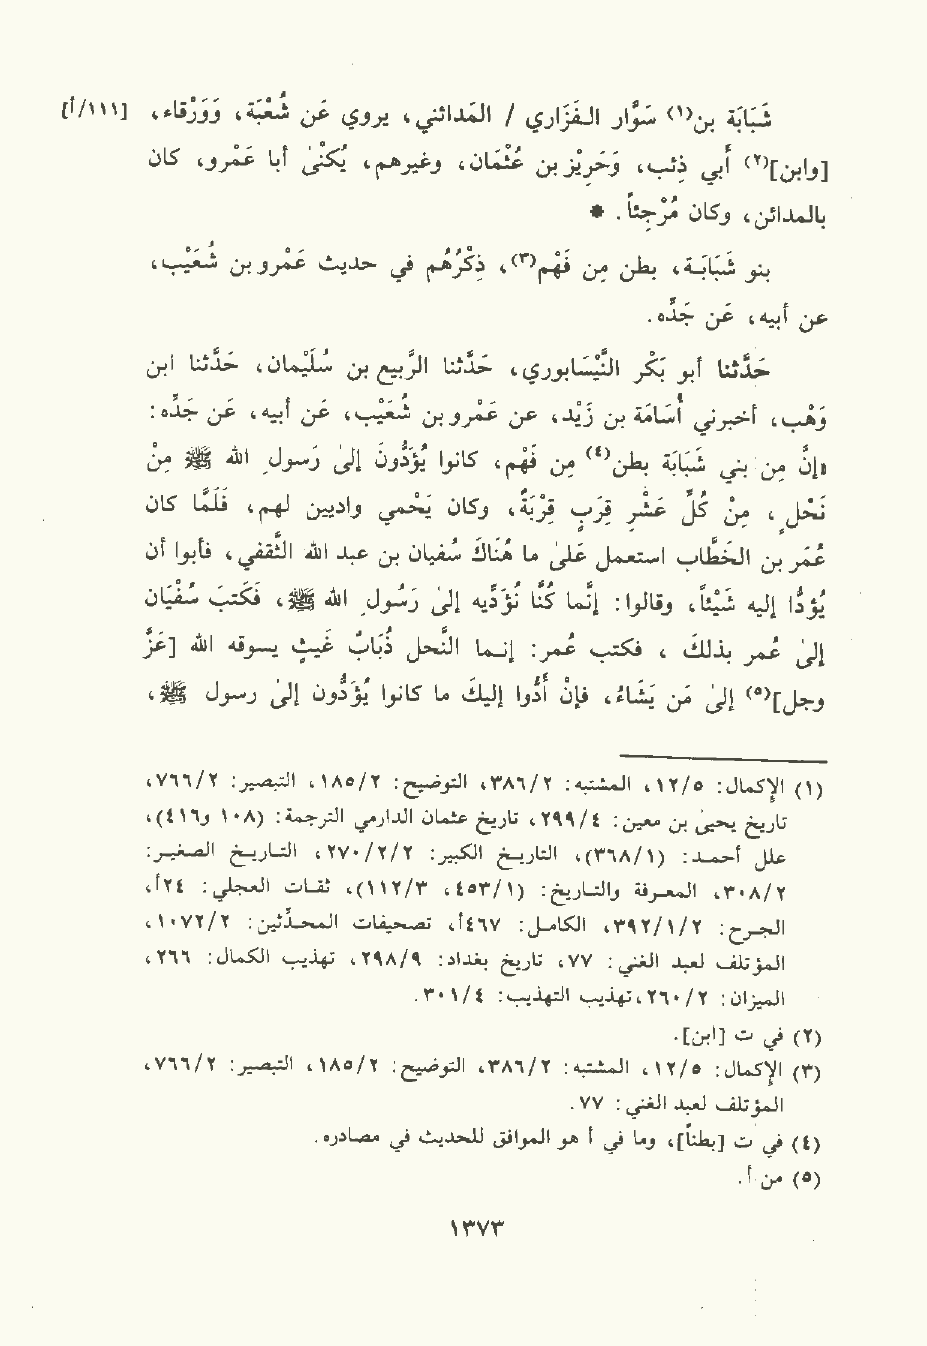 شَبَابَة بن(١) سَوَّار الفَزَاري / المَدائني، يروي عَن شُعْبَة، وَوَرْقاء، [١١١/أ]
[وابن](٢) أبي ذِئب، وَحَرِيْز بن عُثْمَان، وغيرهم، يُكنىٰ أبا عَمْرو، كان
بالمدائن، وكان مُرْجِئاً. *
بنو شَبَابَـة، بطن مِن فَهْم(٣)، ذِكْرُهُم في حديث عَمْرو بن شُعَيْب،
عن أبيه، عَن جَدِّه.
حَدَّثنا أبو بَكْر النَّيْسَابوري، حَدَّثنا الرَّبيع بن سُلَيْمان، حَدَّثنا ابن
وَهْب، أخبرني أُسَامَة بن زَيْد، عن عَمْرو بن شُعَيْب، عَن أبيه، عَن جَدِّه:
«إنَّ من بني شَبَابَة بطن(٤) مِن فَهْم، كانوا يُؤَدُّونَ إلىٰ رَسولِ الله ﷺ مِنْ
نَحْلٍ، مِنْ كُلِّ عَشْرِ قِرَبٍ قِرْبَةٌ، وكان يَحْمي واديين لهم، فَلَمَّا كان
عُمَر بن الخَطَّاب استعمل عَلىٰ ما هُنَاكَ سُفيان بن عبد الله الثَّقفي، فأبوا أن
يُؤدُّا إليه شَيْئاً، وقالوا: إنَّما كُنَّا نُؤَدِّيه إلىٰ رَسُولِ الله ﷺ، فَكَتَبَ سُفْيَان
إلىٰ عُمَر بذلك، فكتب عُمر: إنـما النَّحل ذُبَابُ غَيثٍ يسوقه الله [عَزَّ
وجل](٥) إلىٰ مَن يَشَاءُ، فإنْ أَدُّوا إليكَ ما كانوا يُؤَدُّون إلىٰ رسول ﷺ،
(١) الإكمال: ١٢/٥، المشتبه: ٣٨٦/٢، التوضيح: ١٨٥/٢، التبصير: ٧٦٦/٢،
تاريخ يحيىٰ بن معين: ٢٩٩/٤، تاريخ عثمان الدارمي الترجمة: (١٠٨ و٤١٦)،
علل أحمد: (٣٦٨/١)، التاريخ الكبير: ٢٧٠/٢/٢، التاريخ الصغير:
٣٠٨/٢، المعرفة والتاريخ: (٤٥٣/١، ١١٢/٣)، ثقات العجلي: ٢٤أ،
الجرح: ٣٩٢/١/٢، الكامل: ٤٦٧أ، تصحيفات المحدِّثين: ١٠٧٢/٢،
المؤتلف لعبد الغني: ٧٧، تاريخ بغداد: ٢٩٨/٩، تهذيب الكمال: ٢٦٦،
الميزان: ٢٦٠/٢، تهذيب التهذيب: ٣٠١/٤.
(٢) في ت [ابن].
(٣) الإكمال: ١٢/٥، المشتبه: ٣٨٦/٢، التوضيح: ١٨٥/٢، التبصير: ٧٦٦/٢،
المؤتلف لعبد الغني: ٧٧.
(٤) في ت [بطناً]، وما في أ هو الموافق للحديث في مصادره.
(٥) من أ.
١٣٧٣